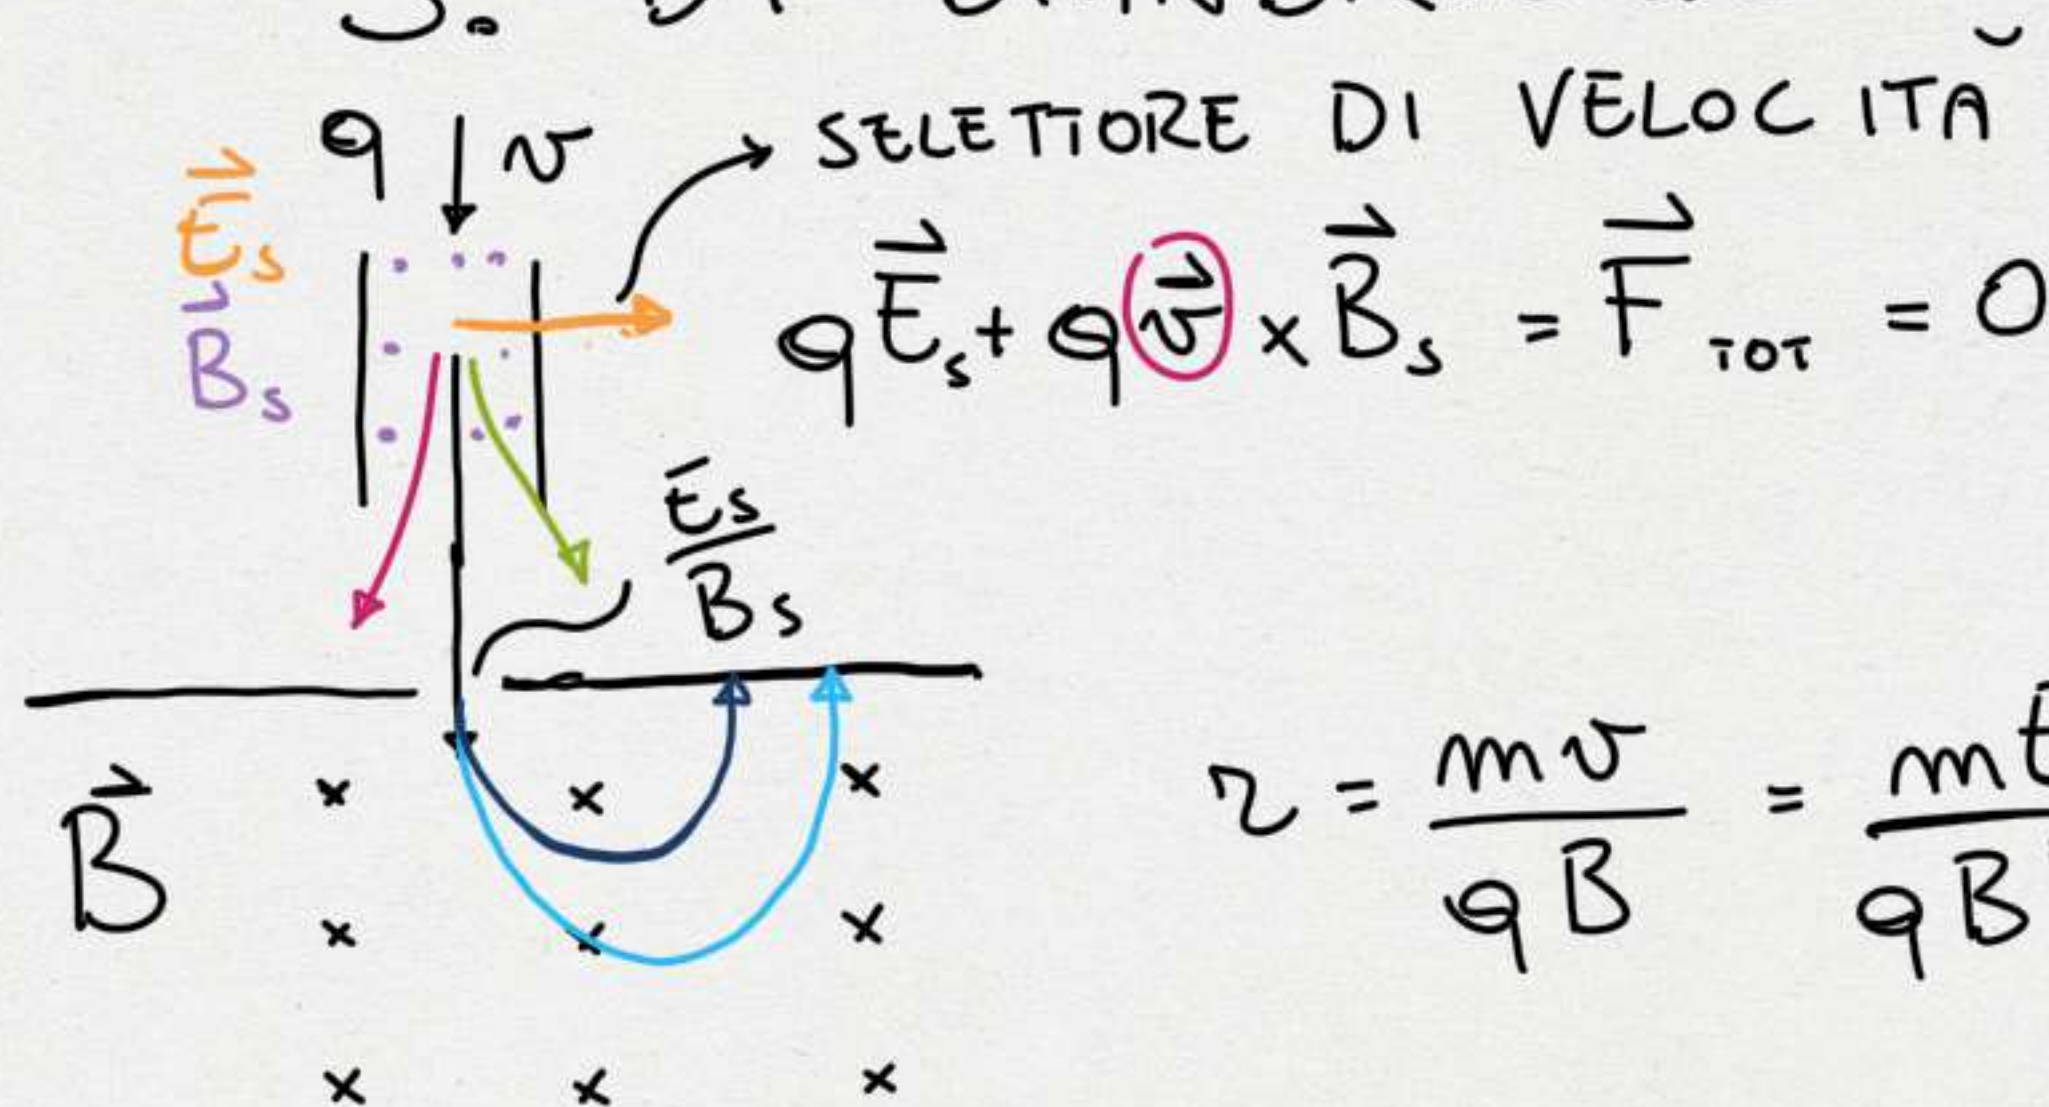 q v
SELETTORE DI VELOCITÀ
E⃗s
B⃗s
qE⃗s + qv⃗ × B⃗s = F⃗TOT = 0
Es/Bs
B⃗
r = mv/qB = m/qB